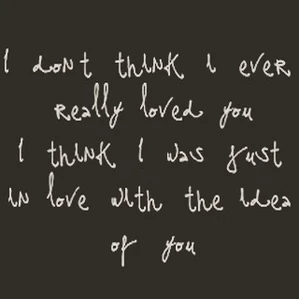 I don't think i ever
Really loved you
I think I was just
in love with the idea
of you